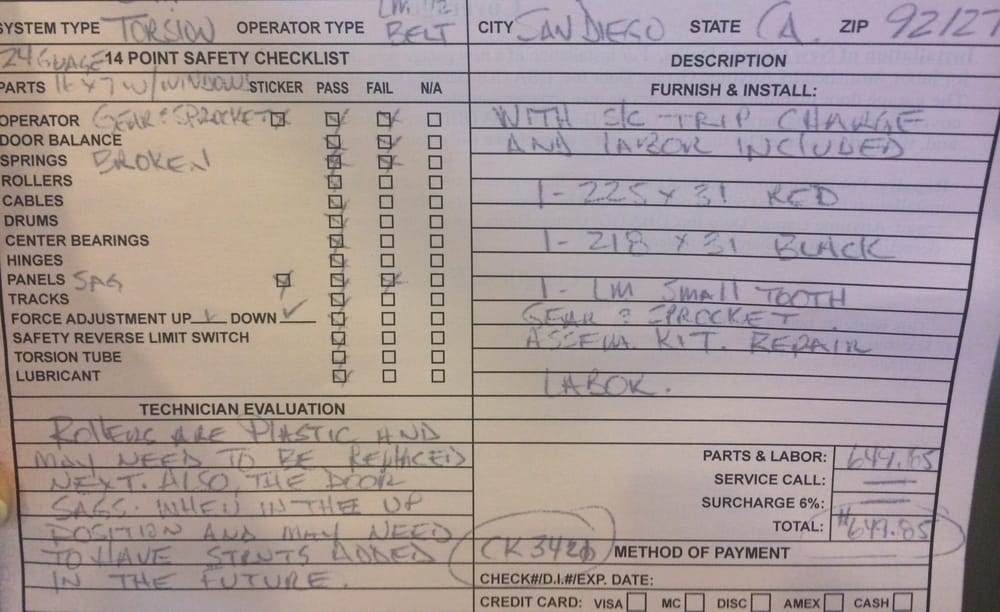 SYSTEM TYPE TORSION OPERATOR TYPE LM 1/2 BELT CITY SAN DIEGO STATE CA. ZIP 92127
24 GUAGE 14 POINT SAFETY CHECKLIST
PARTS 16x7 W/WINDOWS STICKER PASS FAIL N/A
OPERATOR GEAR & SPROCKET
DOOR BALANCE
SPRINGS BROKEN
ROLLERS
CABLES
DRUMS
CENTER BEARINGS
HINGES
PANELS SAG
TRACKS
FORCE ADJUSTMENT UP ✓ DOWN ✓
SAFETY REVERSE LIMIT SWITCH
TORSION TUBE
LUBRICANT
TECHNICIAN EVALUATION
ROLLERS ARE PLASTIC AND
MAY NEED TO BE REPLACED
NEXT. ALSO, THE DOOR
SAGS WHEN IN THEE UP
POSITION AND MAY NEED
TO HAVE STRUTS ADDED
IN THE FUTURE.
DESCRIPTION
FURNISH & INSTALL:
WITH S/C TRIP CHARGE
AND LABOR INCLUDED
1- 225 x 31 RED
1- 218 x 31 BLACK
1- LM SMALL TOOTH
GEAR & SPROCKET
ASSEM. KIT. REPAIR
LABOR.
PARTS & LABOR: 649.85
SERVICE CALL: —
SURCHARGE 6%: —
TOTAL: $649.85
CK 3426 METHOD OF PAYMENT
CHECK#/D.I.#/EXP. DATE:
CREDIT CARD: VISA MC DISC AMEX CASH